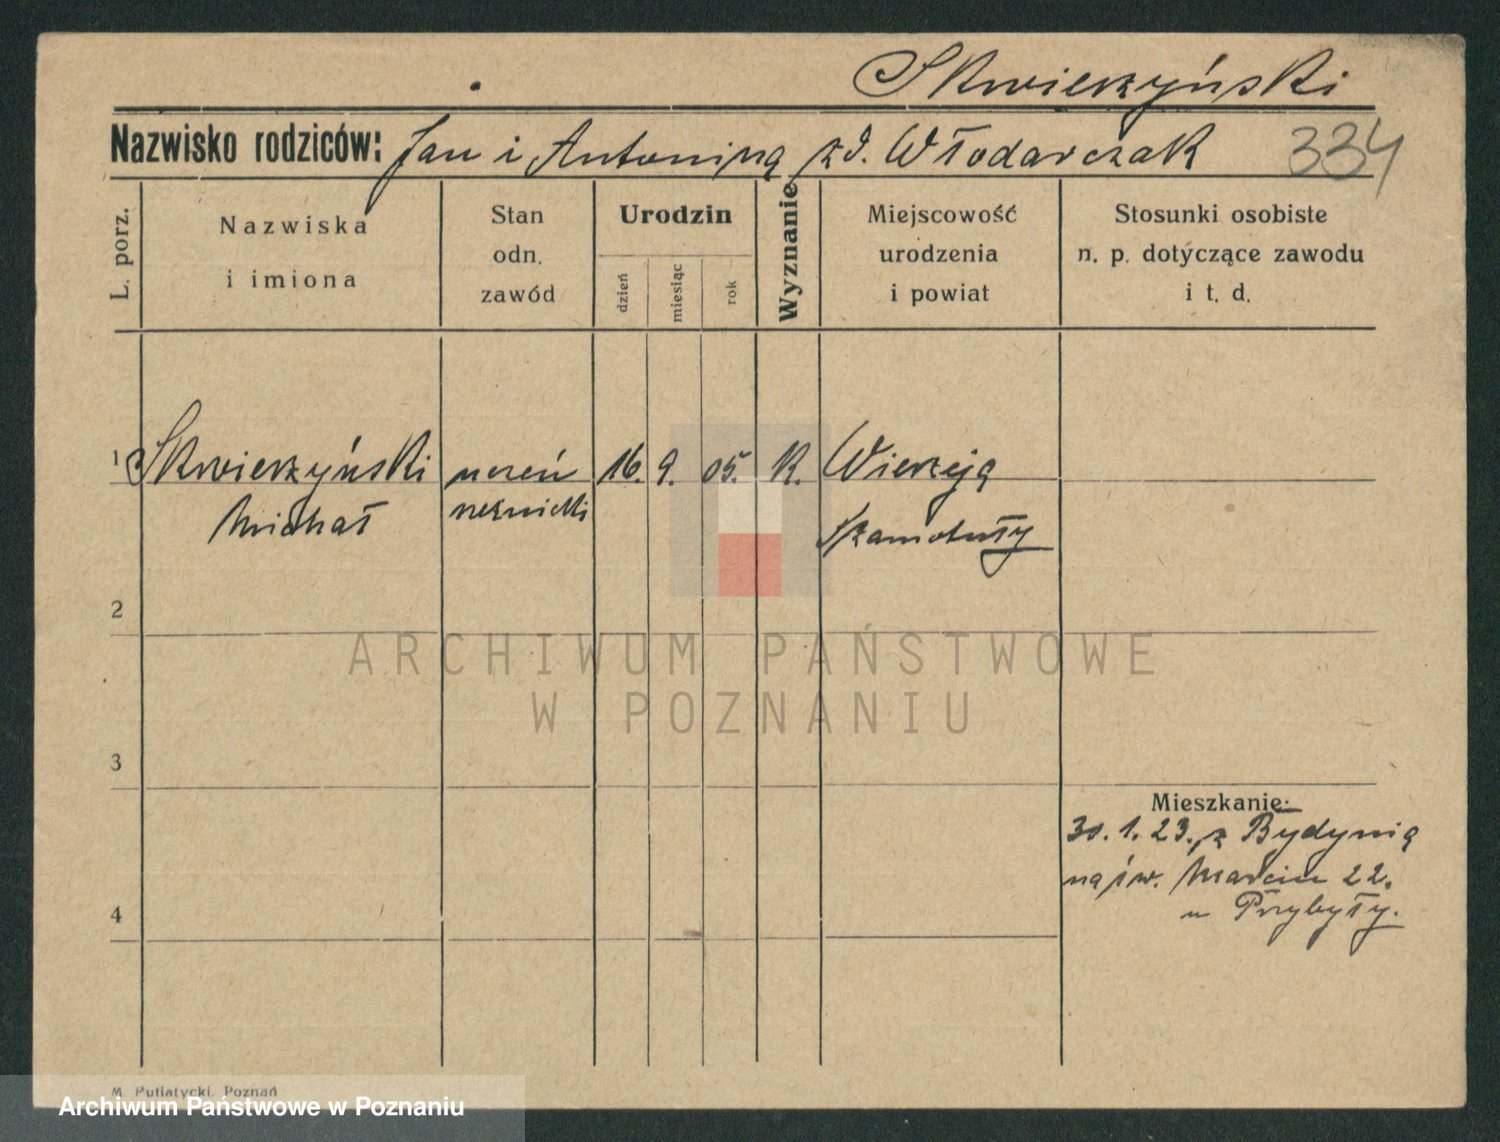 Skwierzyński
Nazwisko rodziców: Jan i Antonina zd. Włodarczak 334
L. porz.
Nazwiska
i imiona
Stan
odn.
zawód
Urodzin
dzień
miesiąc
rok
Wyznanie
Miejscowość
urodzenia
i powiat
Stosunki osobiste
n. p. dotyczące zawodu
i t. d.
1 Skwierzyński uczeń 16. 9. 05. K. Wierzeja
Michał rzeźnicki Szamotuły
2
3
Mieszkanie:
30. 1. 23. z
na św. Marcin 22.
4
u Przybyły.
M. Putiatycki. Poznań
ARCHIWUM PAŃSTWOWE
W POZNANIU
Archiwum Państwowe w Poznaniu